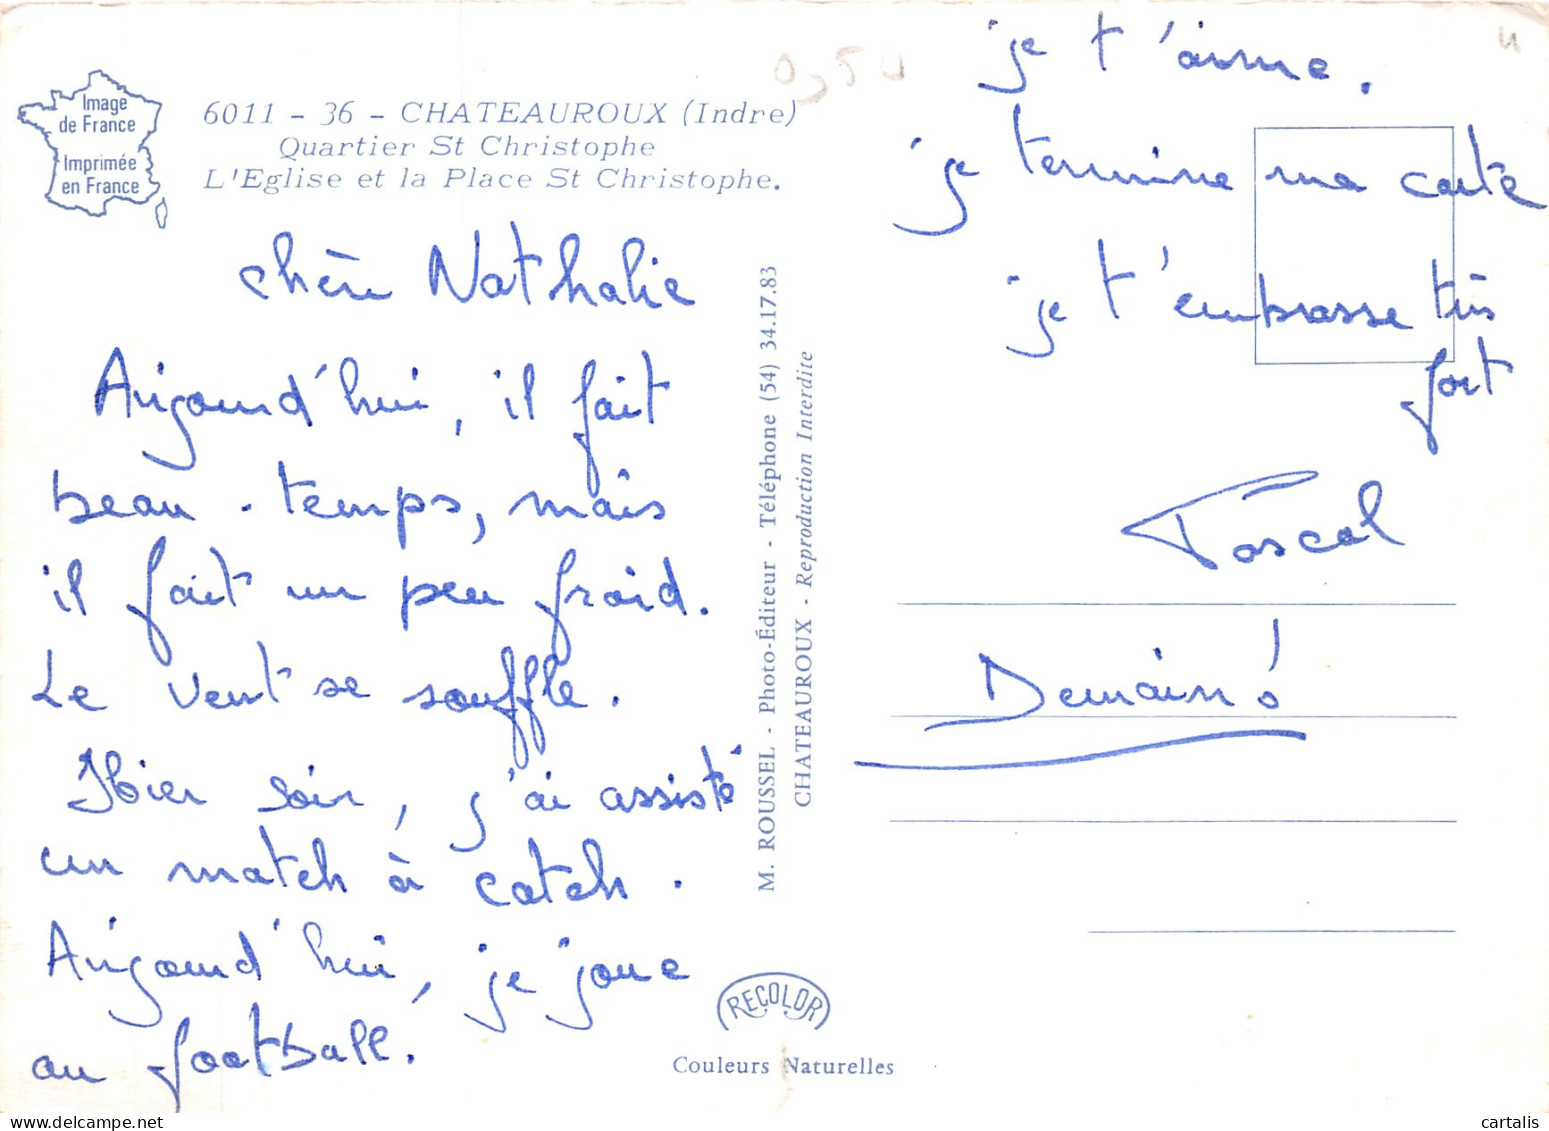 Image
de France
Imprimée
en France
6011 - 36 - CHATEAUROUX (Indre)
Quartier St Christophe
L'Eglise et la Place St Christophe.
chère Nathalie
Aujourd'hui, il fait
beau - temps, mais
il fait un peu froid.
Le vent se souffle.
Hier soir, j'ai assisté
un match à catch.
Aujourd'hui, je joue
au football.
M. ROUSSEL - Photo-Éditeur - Téléphone (54) 34.17.83
CHATEAUROUX - Reproduction Interdite
RECOLOR
Couleurs Naturelles
0,50
je t'aime.
je termine ma carte
je t'embrasse très
fort
Pascal
Demain !
cartalis